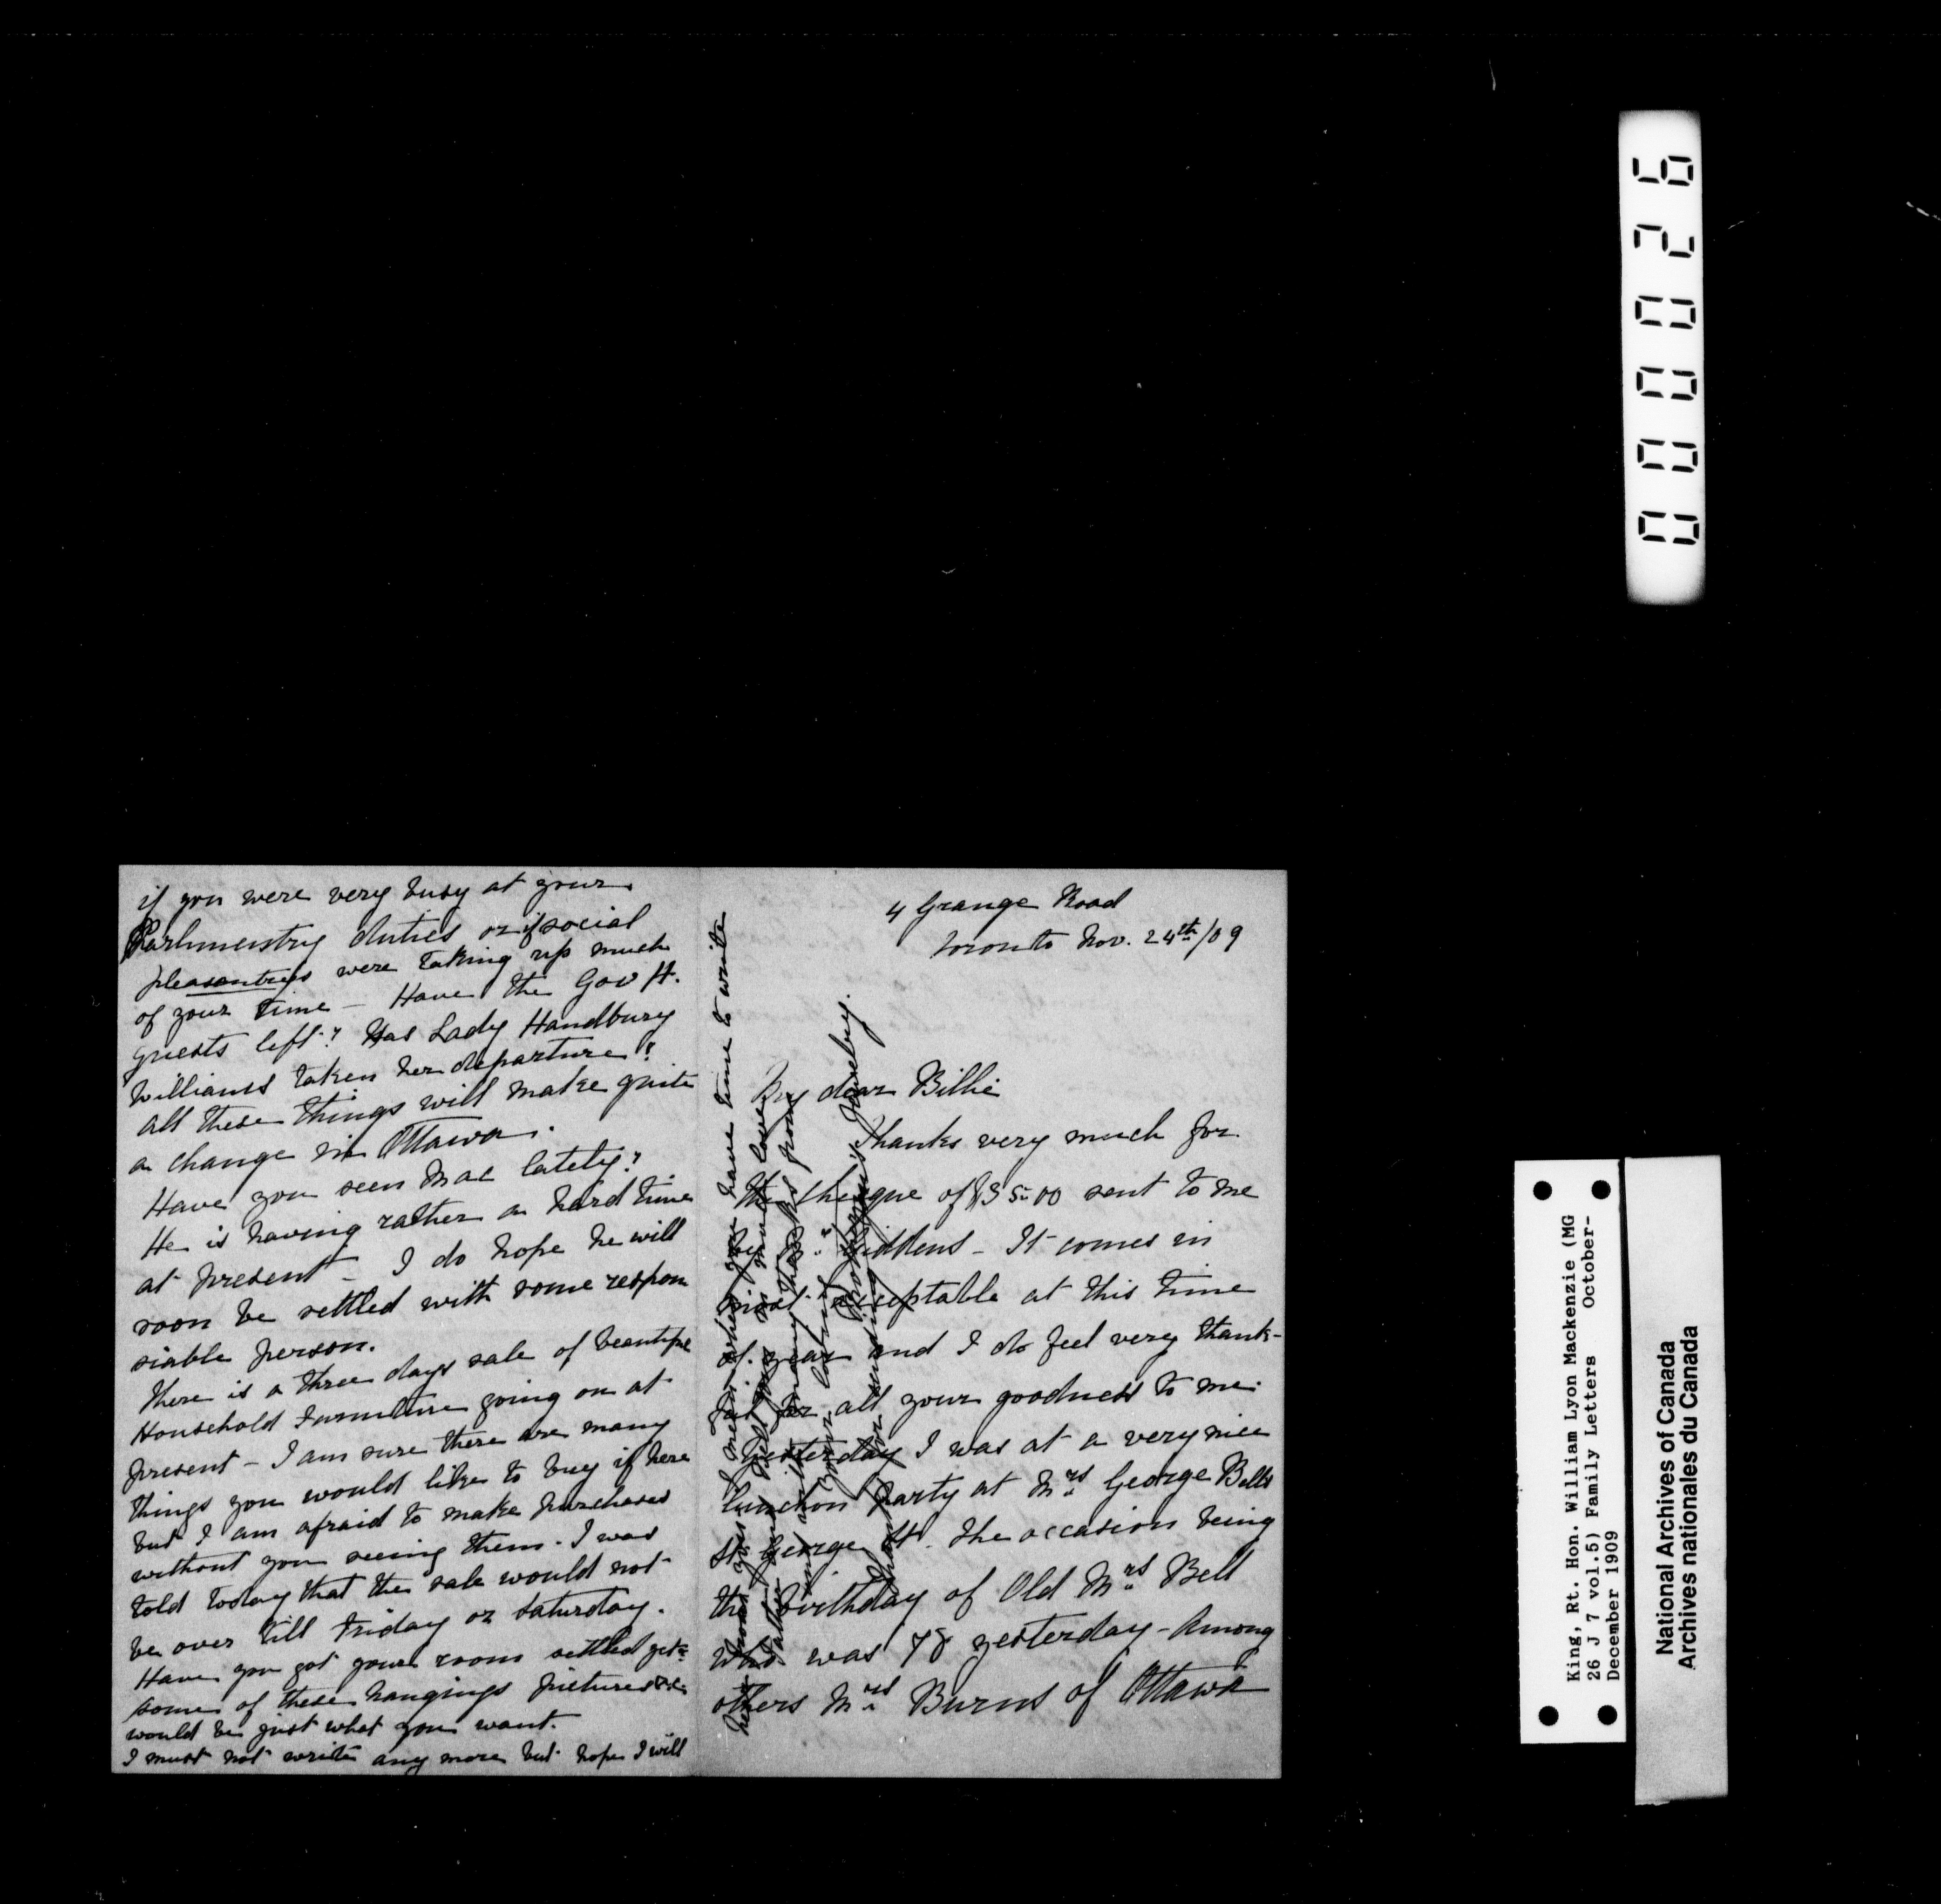 4 Grange Road
Toronto Nov. 24th/09
My dear Billie
Thanks very much for
the cheque of $35.00 sent to me
by Giddens - It comes in
most acceptable at this time
of year and I do feel very thank-
ful for all your goodness to me.
Yesterday I was at a very nice
lunchon party at Mrs George Bells
St George St. The occasion being
the birthday of Old Mrs Bell
who was 78 yesterday - Among
others Mrs Burns of Ottawa
if you were very busy at your
Parlimentry duties or if social
pleasantrys were taking up much
of your time - Have the Gov H.
guests left? Has Lady Handbury
Williams taken her departure?
all these things will make quite
a change in Ottawa.
Have you seen Mac lately?
He is having rather a hard time
at present - I do hope he will
soon be settled with some respon
sible person.
There is a three days sale of beautiful
Household Furniture going on at
present - I am sure there are many
things you would like to buy if here
but I am afraid to make purchases
without you seeing them. I was
told today that the sale would not
be over till Friday or Saturday.
Have you got your room settled yet
some of these hangings pictures &c
would be just what you want.
I must not write any more but hope I will
hear from you soon when you have time to write
Father and Bell join in much love
and with many thanks from
your loving
Mother
King, Rt. Hon. William Lyon Mackenzie (MG
26 J 7 vol.5) Family Letters October-
December 1909
National Archives of Canada
Archives nationales du Canada
000026